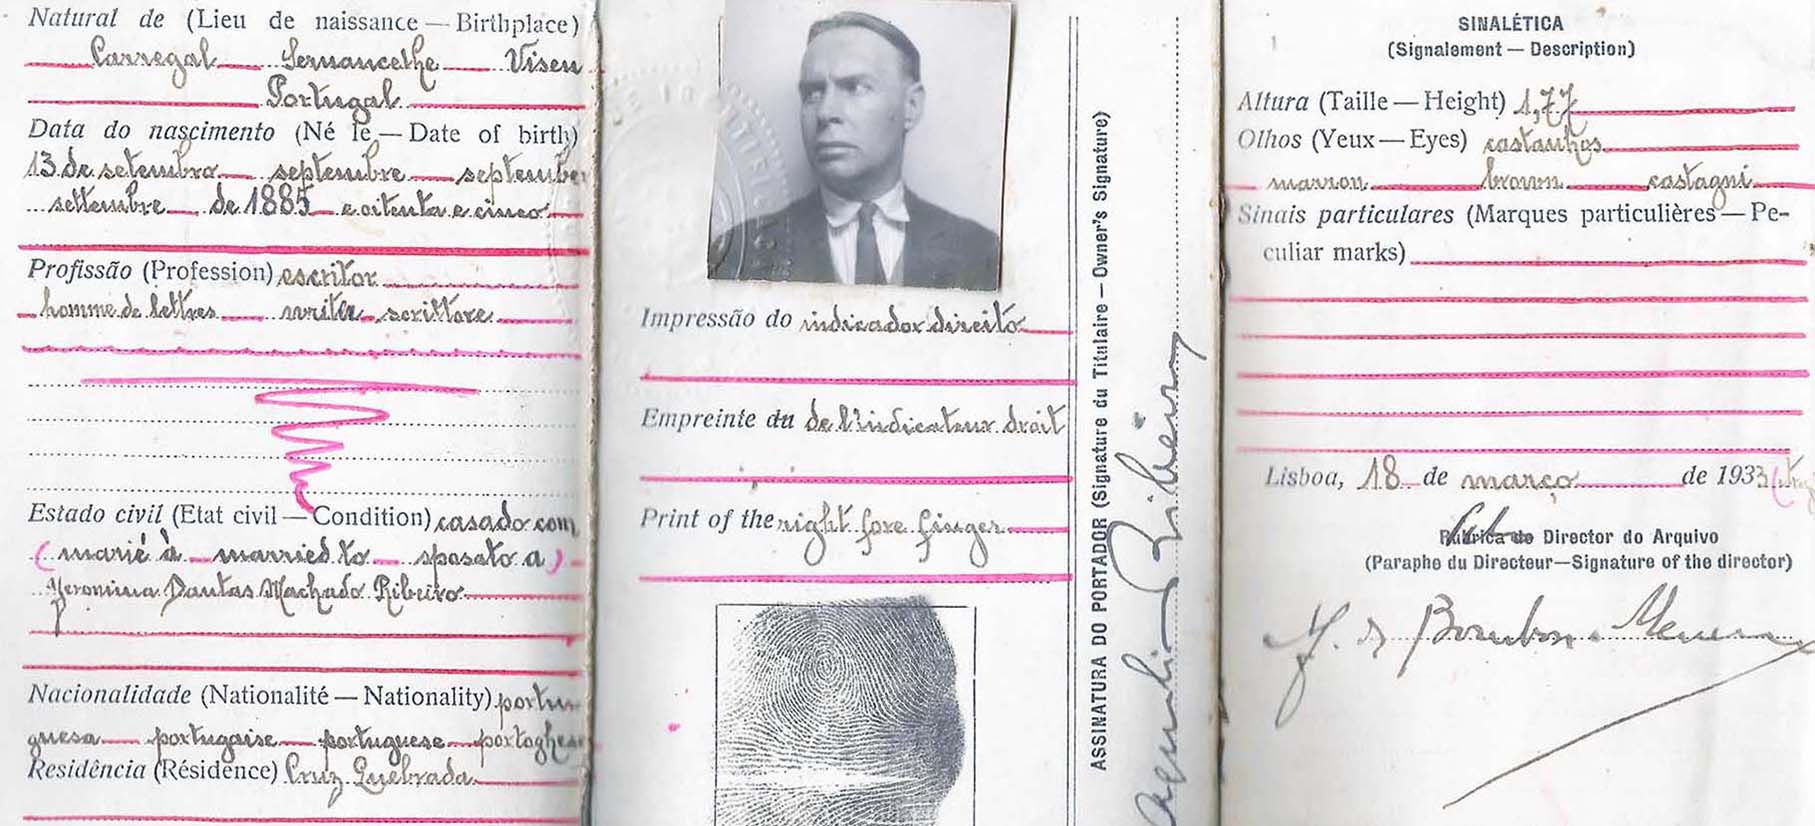 Natural de (Lieu de naissance — Birthplace)
Carregal Sernancelhe Viseu
Portugal
Data do nascimento (Né le — Date of birth)
13 de setembro septembre september
settembre de 1885 e oitenta e cinco
Profissão (Profession) escritor
homme de lettres writer scrittore
Estado civil (Etat civil — Condition) casado com
(marié à married to sposato a)
Jeronima Dantas Machado Ribeiro
Nacionalidade (Nationalité — Nationality) portu-
guesa portugaise portuguese portoghese
Residência (Résidence) Cruz Quebrada
Impressão do indicador direito
Empreinte du de l'indicateur droit
Print of the right fore finger
ASSINATURA DO PORTADOR (Signature du Titulaire — Owner's Signature)
Aquilino Ribeiro
SINALÉTICA
(Signalement — Description)
Altura (Taille — Height) 1,77
Olhos (Yeux — Eyes) castanhos
marron brown castagni
Sinais particulares (Marques particulières — Pe-
culiar marks)
Lisboa, 18 de março de 1933
Rubrica do Director do Arquivo
(Paraphe du Directeur—Signature of the director)